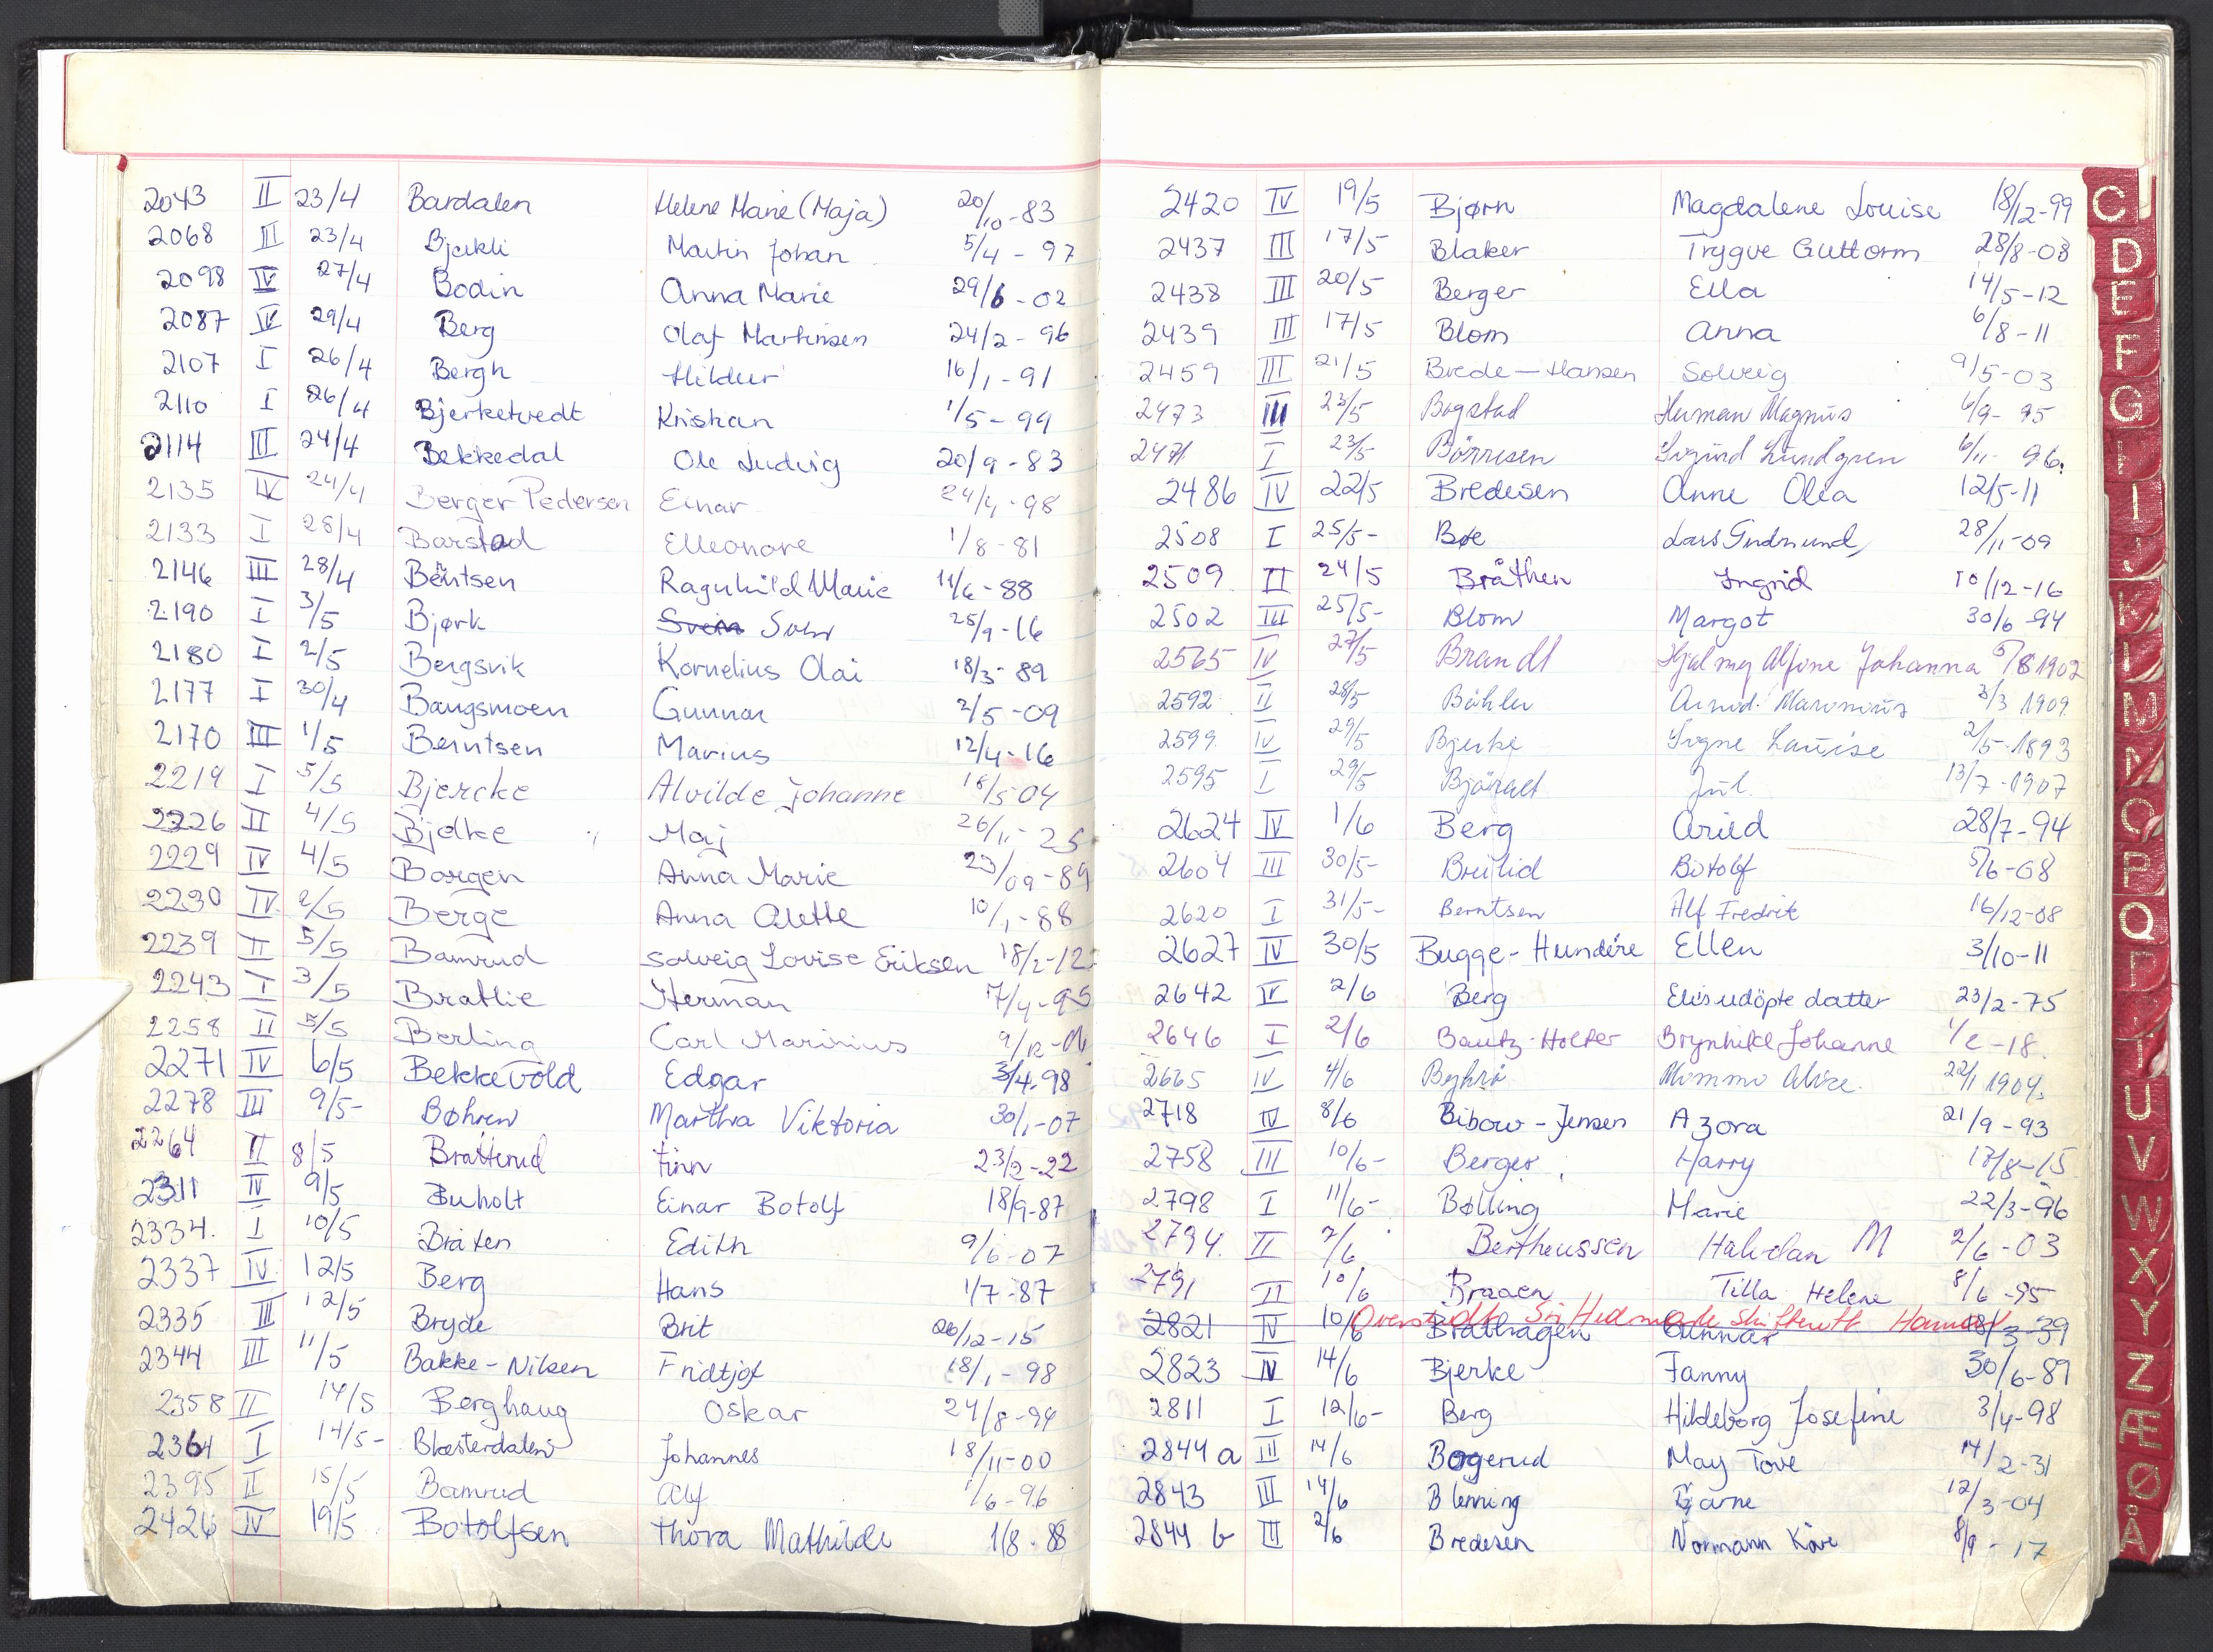 2043 II 23/4 Bardalen Helene Marie (Maja) 20/10-83
2068 III 23/4 Bjerkli Martin Johan 5/4 - 97
2098 IV 27/4 Bodin Anna Marie 29/6 - 02
2087 IV 29/4 Berg Olaf Martinsen 24/2 - 96
2107 I 26/4 Bergh Hildur 16/1 - 91
2110 I 26/4 Bjerketvedt Kristian 1/5 - 99
2114 III 24/4 Bekkedal Ole Ludvig 20/9 - 83
2135 IV 24/4 Berger Pedersen Einar 24/4 -98
2133 I 28/4 Barstad Elleonore 1/8 - 81
2146 III 28/4 Berntsen Ragnhild Marie 11/6 - 88
2190 I 3/5 Bjørk 25/9 -16
2180 I 2/5 Bergsvik Kornelius Olai 18/3 - 89
2177 I 30/4 Bangsmoen Gunnar 2/5 -09
2170 III 1/5 Berntsen Marius 12/4-16
2219 I 5/5 Bjercke Alvilde Johanne 18/5 04
2226 II 4/5 Bjelke Maj 26/11 - 25
2229 IV 4/5 Borgen Anna Marie 23/09 - 89
2230 IV 2/5 Berge Anna Alette 10/1 - 88
2239 II 5/5 Bamrud Solveig Lovise Eriksen 18/2-12
2243 I 3/5 Bratlie Herman 7/4-95
2258 II 5/5 Berling Carl Marinius 9/12-
2271 IV 6/5 Bekkevold Edgar 3/4.98
2278 III 9/5- Bøhren Martha Viktoria 30/1-07
2264 II 8/5 Bratterud Finn 23/2-22
2311 IV 9/5 Buholt Einar Botolf 18/9-87
2334. I 10/5 Bråten Edith 9/6-07
2337 IV 12/5 Berg Hans 1/7-87
2335 III 12/5 Bryde Brit 26/12-15
2344 III 11/5 Bakke-Nilsen Fridtjof 18/1 - 98
2358 II 14/5 Berghaug Oskar 24/8 -94
2364 I 14/5- Blæsterdalen Johannes 18/11-00
2395 II 15/5 Bamrud Alf 1/6 -96
2426 IV 19/5 Botolfsen Thora Mathilde 1/8 - 88
2420 IV 19/5 Bjørn Magdalene Louise 18/12-99
2437 III 17/5 Blaker Trygve Guttorm 28/8-08
2438 III 20/5 Berger Ella 14/5-12
2439 III 17/5 Blom Anna 6/8-11
2459 III 21/5 Brede-Hansen Solveig 9/5-03
2473 III 23/5 Bogstad Herman Magnus 6/9- 95
2471 I 23/5 Børresen Lundgren 6/11- 96.
2486 IV 22/5 Bredesen Anne Olea 12/5-11
2508 I 25/5- Bøe Lars Gudmund 28/11-09
2509. II 24/5 Bråthen Ingrid 10/12-16
2502 III 25/5- Blom Margot 30/6-94
2565 IV 27/5 Brandt Johanna 5/8 1902
2592 II 28/5 Bøhler 3/3 1909
2599 IV 29/5 Bjerke Signe Lauise 2/5-1893
2595 I 29/5 13/7-1907
2624 IV 1/6 Berg Arild 28/7-94
2604 III 30/5- Breilid Botolf 5/6-08
2620 I 31/5- Berntsen Alf Fredrik 16/12-08
2627 IV 30/5 Bugge-Hundere Ellen 3/10-11
2642 IV 2/6 Berg Elis udøpte datter 23/2-75
2646 I 2/6 Bautz-Holter Brynhild Johanne 1/2-18.
2665 IV 4/6 Mimmi Alice. 22/1 1904.
2718 IV 8/6 Bibow-Jensen Azora 21/9-93
2758 III 10/6- Berger Harry 17/8-15
2798 I 11/6- Bølling Marie 22/3-96
2794. II 7/6 Bertheussen Halvdan M 2/6-03
2791 II 10/6 Braaen Tilla Helene 8/6-95
Hamar
2821 IV 10/6 Bråthagen Gunnar 18/3-39
2823 IV 14/6 Bjerke Fanny 30/6-89
2811 I 12/6- Berg Hildeborg Josefine 3/4-98
2844 a III 14/6 Bogerud May Tove 14/2-31
2843 III 14/6 Blenning Bjarne 12/3-04
2844 b III 2/6 Bredesen Normann Kåre 8/9-17
C
D
E
F
G
H
I
J
K
L
M
N
O
P
Q
R
T
U
V
W
X
Y
Z
Æ
Ø
Å